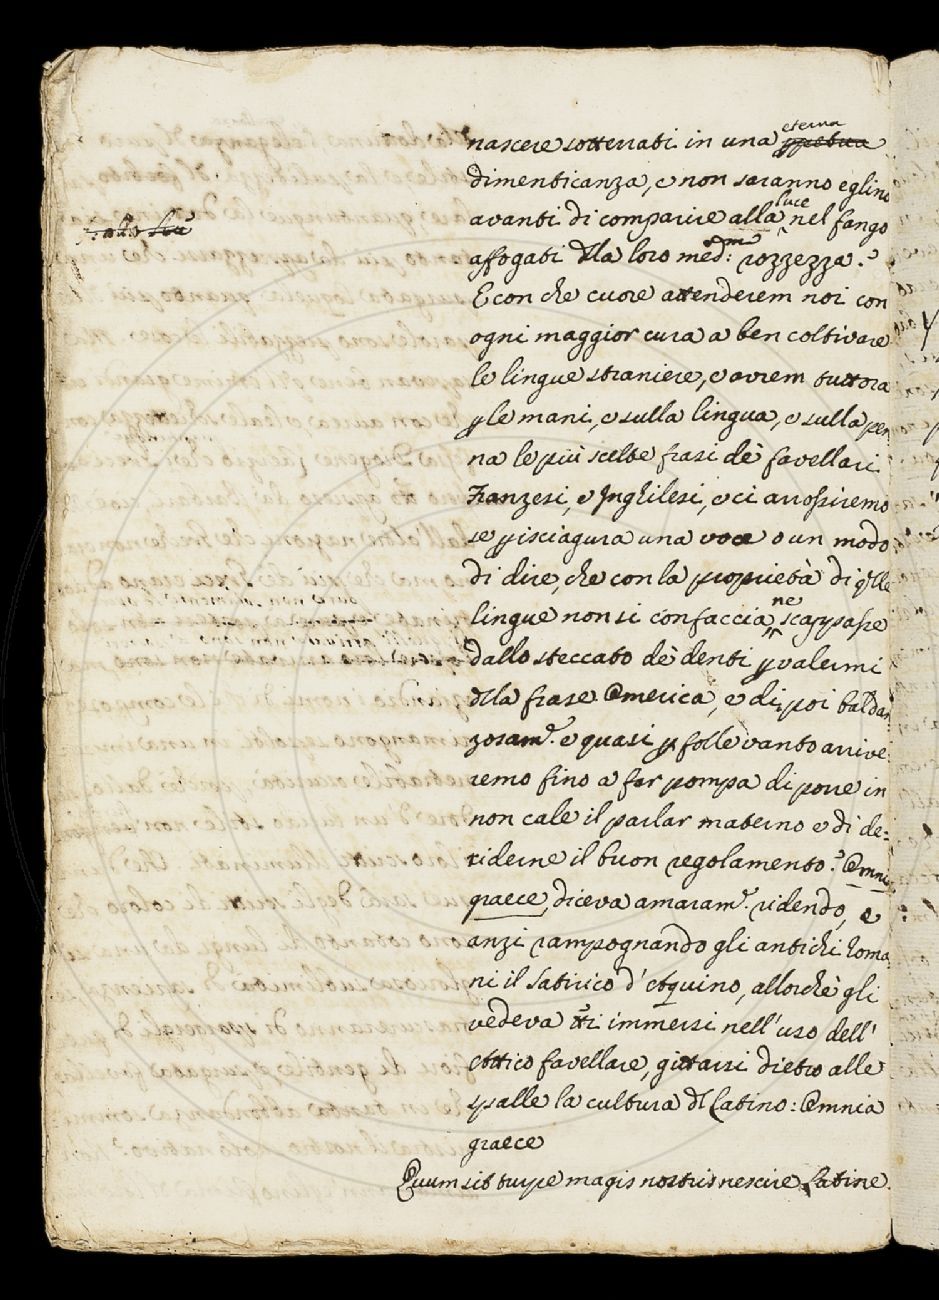 nascere sotterrati in una eterna
dimenticanza, e non saranno eglino
avanti di comparire alla luce nel fango
affogati dlla loro med:sma rozzezza?
E con che cuore attenderem noi con
ogni maggior cura a ben coltivare
le lingue straniere, e avrem tuttora
p le mani, e sulla lingua, e sulla pen
na le più scelte frasi dè favellari
Franzesi, e Inghilesi, e ci arrossiremo
se p isciagura una voce o un modo
di dire, che con la proprietà di qlle
lingue non si confaccia, ne scappasse
dallo steccato dè denti p valermi
dlla frase Omerica, e di poi baldan
zosam.e e quasi p folle vanto arrive
remo fino a far pompa di porre in
non cale il parlar materno e di de=
riderne il buon regolamento? Omnia
graece, diceva amaram.e ridendo, e
anzi rampognando gli antichi Roma
ni il Satirico d'Aquino, allorchè gli
vedeva tti immersi nell'uso dell'
Attico favellare, gittarsi dietro alle
spalle la cultura dl Latino: Omnia
graece
Quum sit turpe magis nostris nescire Latine.